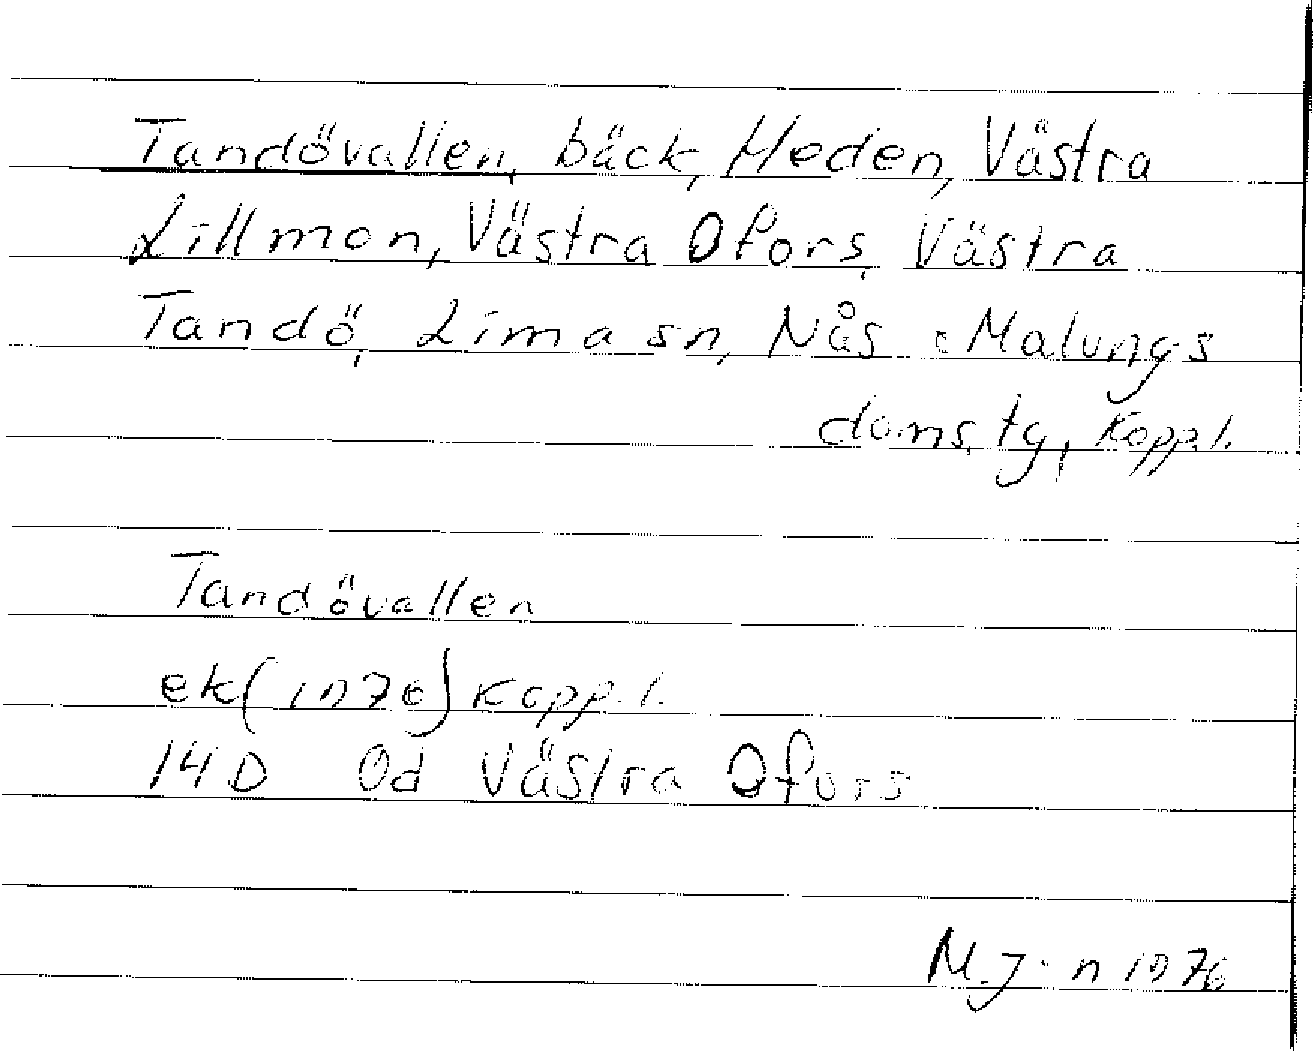 Tandövallen, bäck, Heden, Västra
Lillmon, Västra Ofors, Västra
Tandö, Lima sn, Nås o Malungs
doms. tg, Kopp.l.
Tandövallen
ek (1970) Kopp.l.
14D 0d Västra Ofors
M.J-n 1976